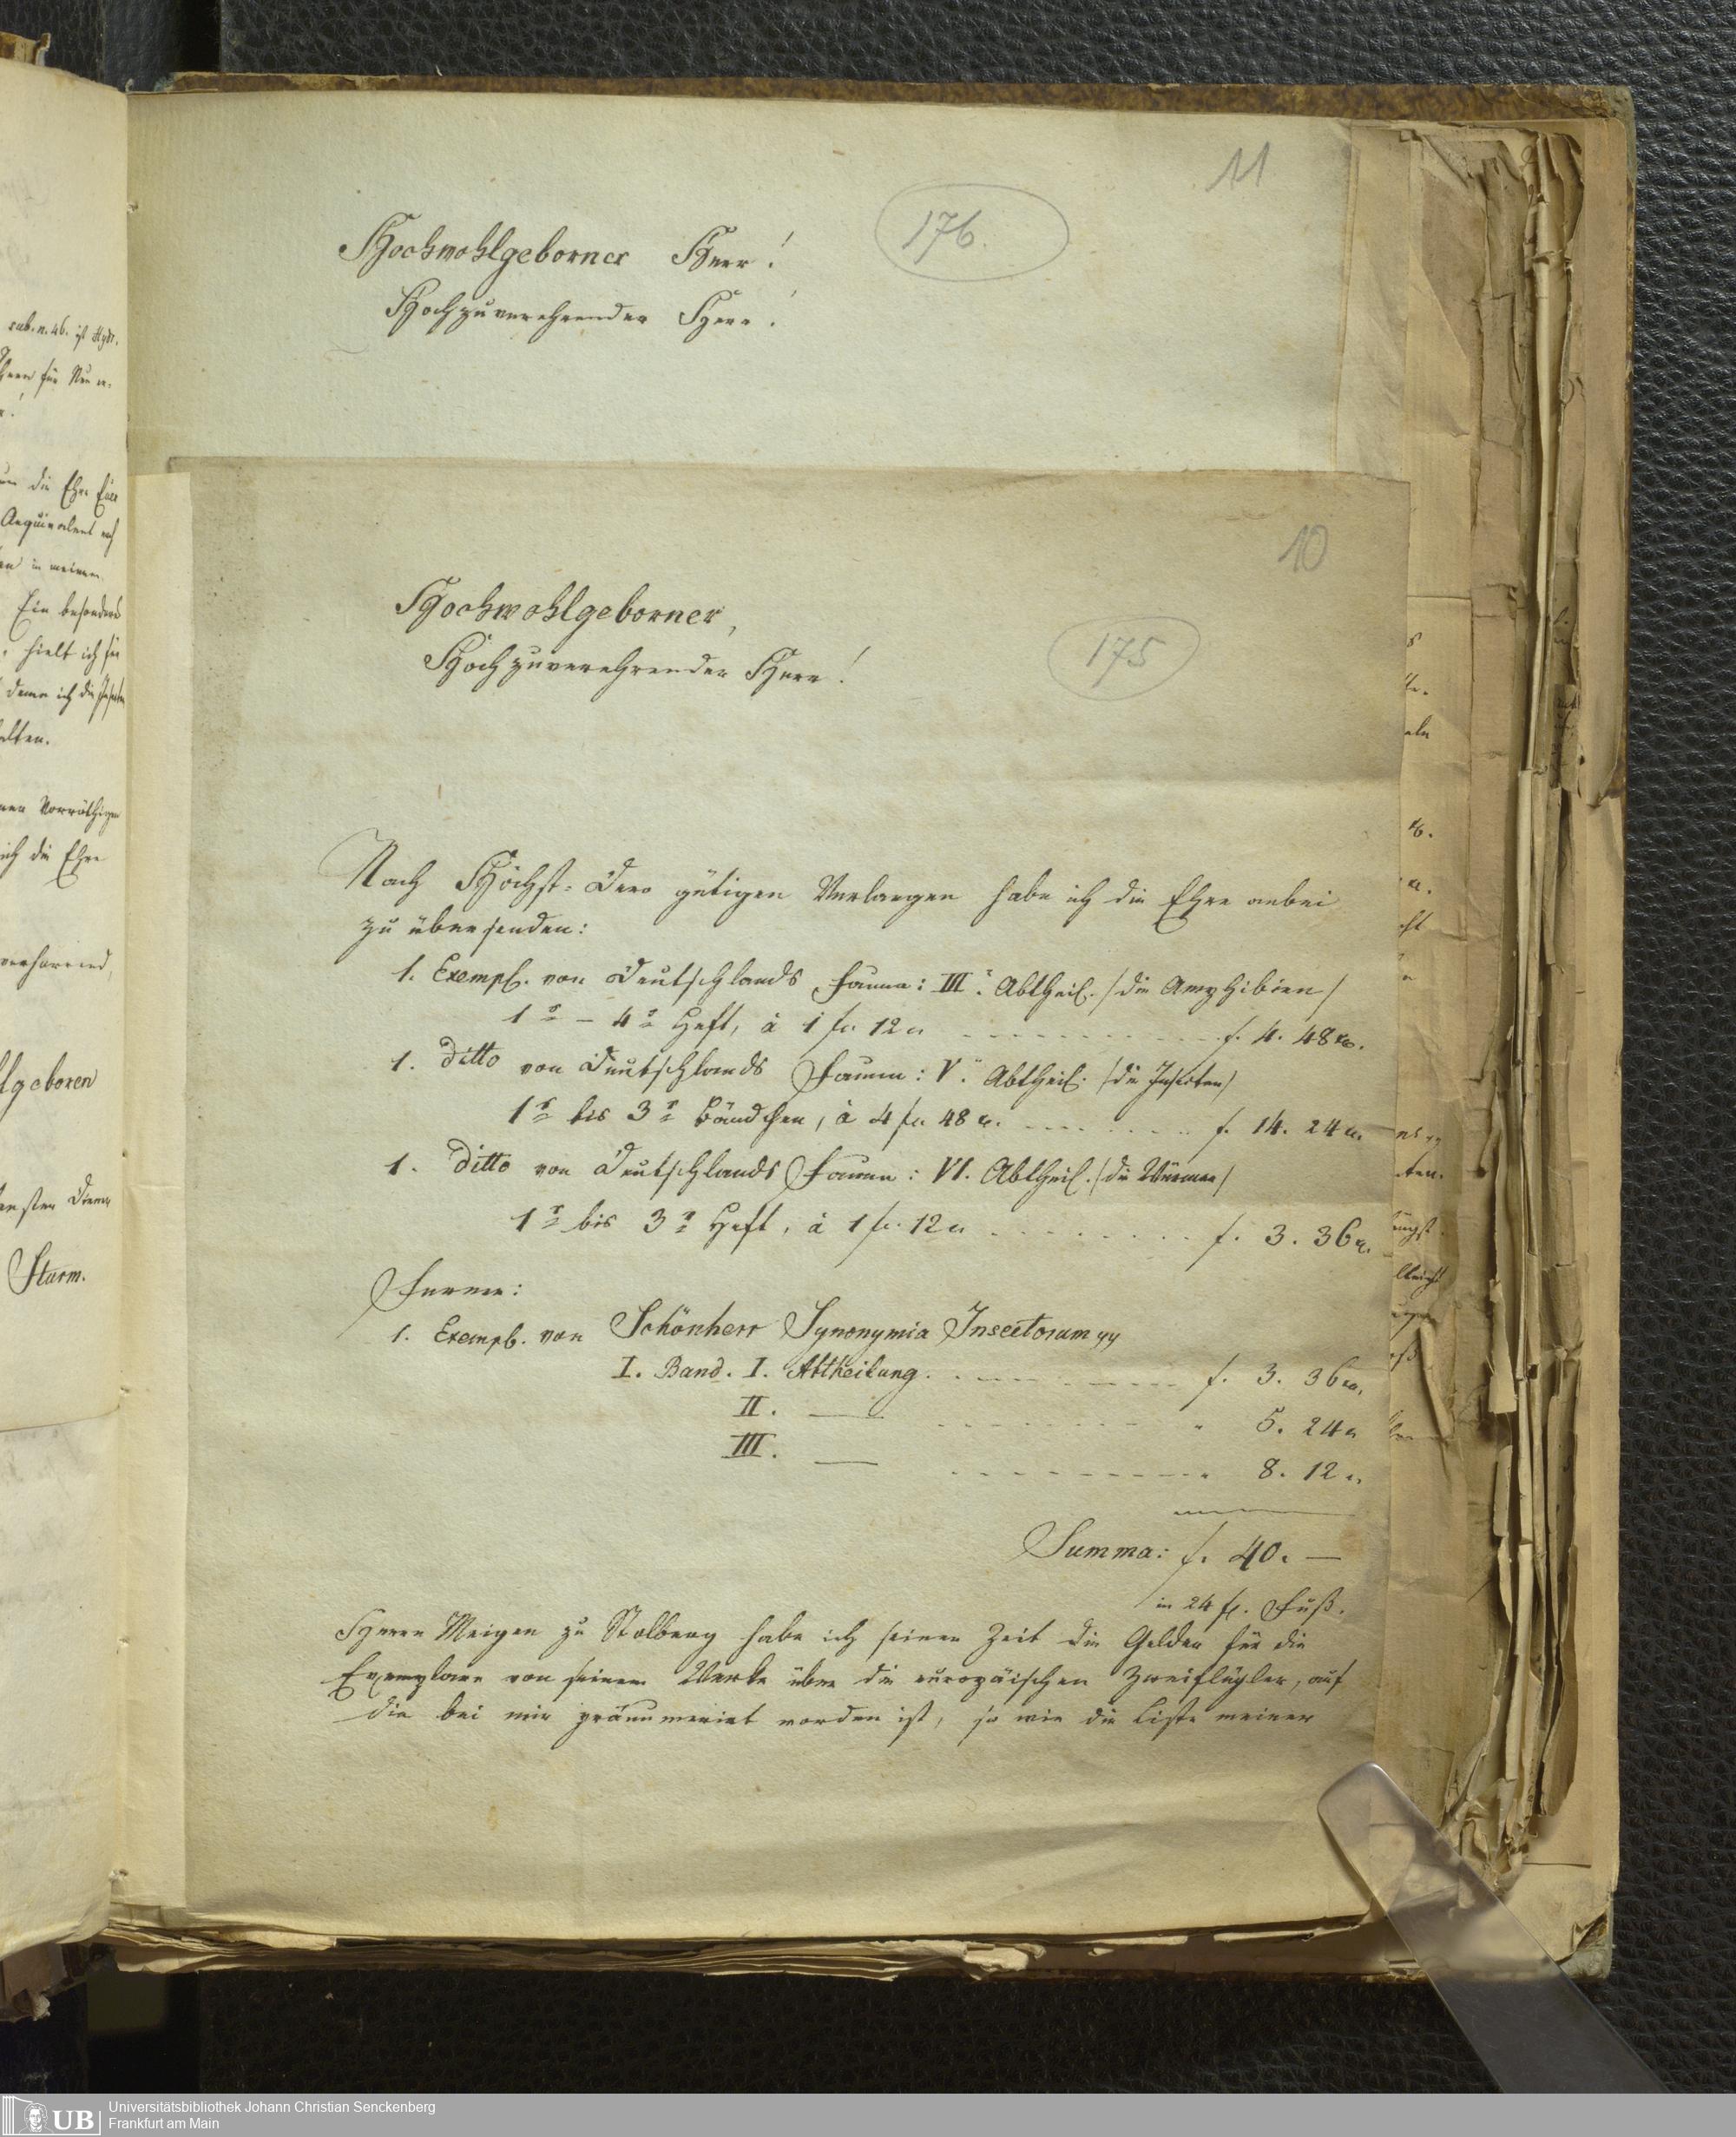 11
176.
Hochwohlgeborner Herr!
Hochzuverehrender Herr!
10
175
Hochwohlgeborner,
Hochzuverehrender Herr!
Nach Höchst-Dero gütigen Verlangen habe ich die Ehre anbei
zu übersenden:
1. Exempl. von Deutschlands Fauna: III.r Abtheil. /die Amphibien/
1s – 4s Heft, à 1 fl. 12 x. f. 4. 48 xr.
1. Ditto von Deutschlands Fauna: V.r Abtheil. /die Insecten/
1s bis 3s Bändchen, à 4 fl. 48 x. f. 14. 24 x.
1. Ditto von Deutschlands Fauna: VI. Abtheil. /die Würmer/
1s bis 3s Heft, à 1 fl. 12 x. f. 3. 36 x.
Ferner:
1. Exempl. von Schönherr Synonymia Insectorum
I. Band. I. Abtheilung. f. 3. 36 xr.
II. — " 5. 24 x
III. — " 8. 12 x.
Summa: f. 40. —
in 24 fl. Fuß.
Herrn Meigen zu Stolberg habe ich seiner Zeit die Gelder für die
Exemplare von seinem Werke über die europäischen Zweiflügler, auf
die bei mir pränumerirt worden ist, so wie die Liste meiner
sub. n. 46. ist Hydr.
für
die Ehre Eüer
Aequivalent
in meinem
Ein besonders
hielt ich für
denn ich die
alten.
Vorräthigen
ich die Ehre
verharrend,
lgeboren
Diener
Sturm.
UB
Universitätsbibliothek Johann Christian Senckenberg
Frankfurt am Main